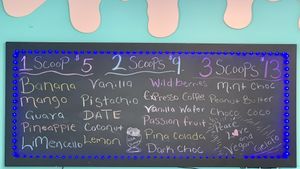 1 Scoop $5
2 Scoops $9
3 Scoops $13
Banana
mango
Guava
Pineapple
Limencello
Vanilla
Pistachio
DATE
Coconut
Lemon
Wild berries
Espresso Coffee
Vanilla Wafer
Passion fruit
Pina Colada
Dark Choc
Mint Choc
Peanut Butter
Choco Coco
Vegan Gelato